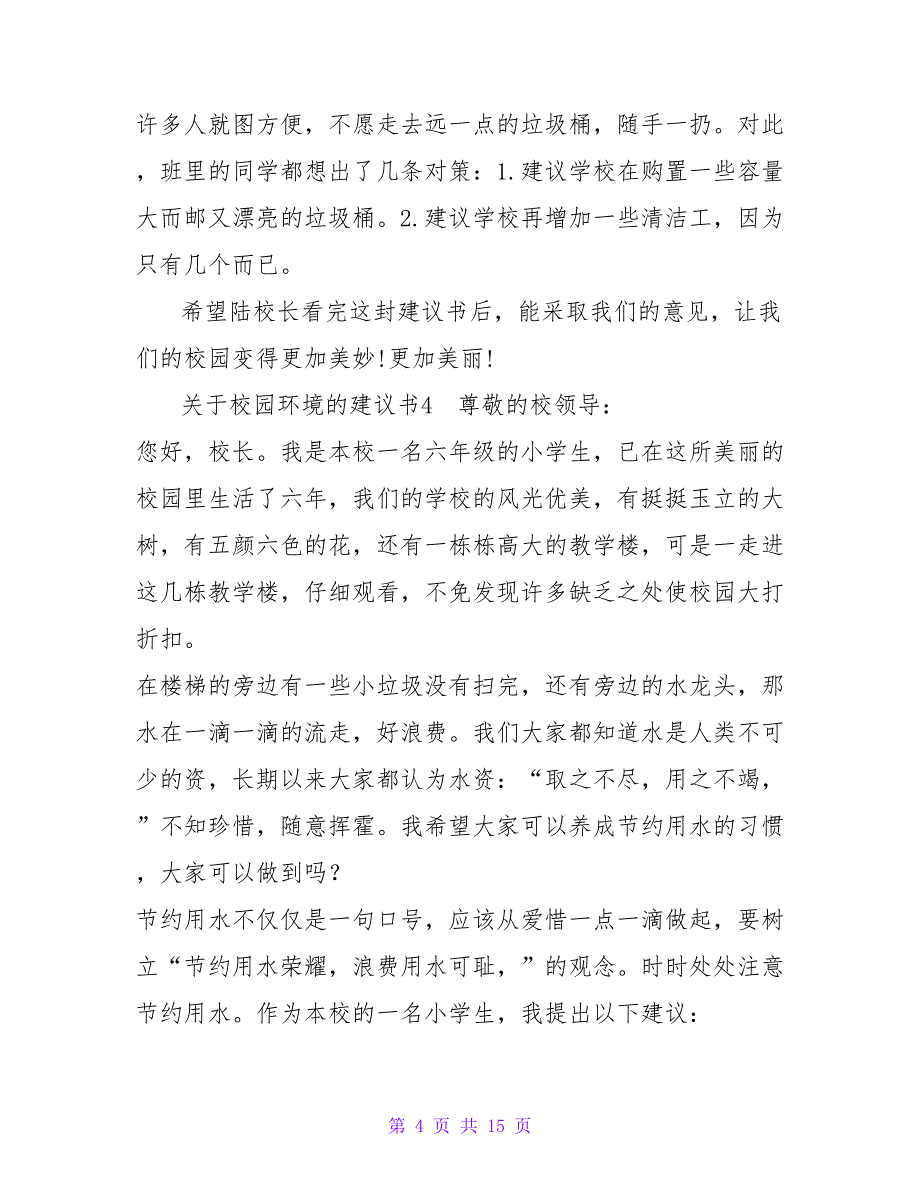 许多人就图方便，不愿走去远一点的垃圾桶，随手一扔。对此
，班里的同学都想出了几条对策：1.建议学校在购置一些容量
大而邮又漂亮的垃圾桶。2.建议学校再增加一些清洁工，因为
只有几个而已。
希望陆校长看完这封建议书后，能采取我们的意见，让我
们的校园变得更加美妙!更加美丽!
关于校园环境的建议书4　尊敬的校领导：
您好，校长。我是本校一名六年级的小学生，已在这所美丽的
校园里生活了六年，我们的学校的风光优美，有挺挺玉立的大
树，有五颜六色的花，还有一栋栋高大的教学楼，可是一走进
这几栋教学楼，仔细观看，不免发现许多缺乏之处使校园大打
折扣。
在楼梯的旁边有一些小垃圾没有扫完，还有旁边的水龙头，那
水在一滴一滴的流走，好浪费。我们大家都知道水是人类不可
少的资，长期以来大家都认为水资：“取之不尽，用之不竭，
”不知珍惜，随意挥霍。我希望大家可以养成节约用水的习惯
，大家可以做到吗？
节约用水不仅仅是一句口号，应该从爱惜一点一滴做起，要树
立“节约用水荣耀，浪费用水可耻，”的观念。时时处处注意
节约用水。作为本校的一名小学生，我提出以下建议：
第 4 页 共 15 页